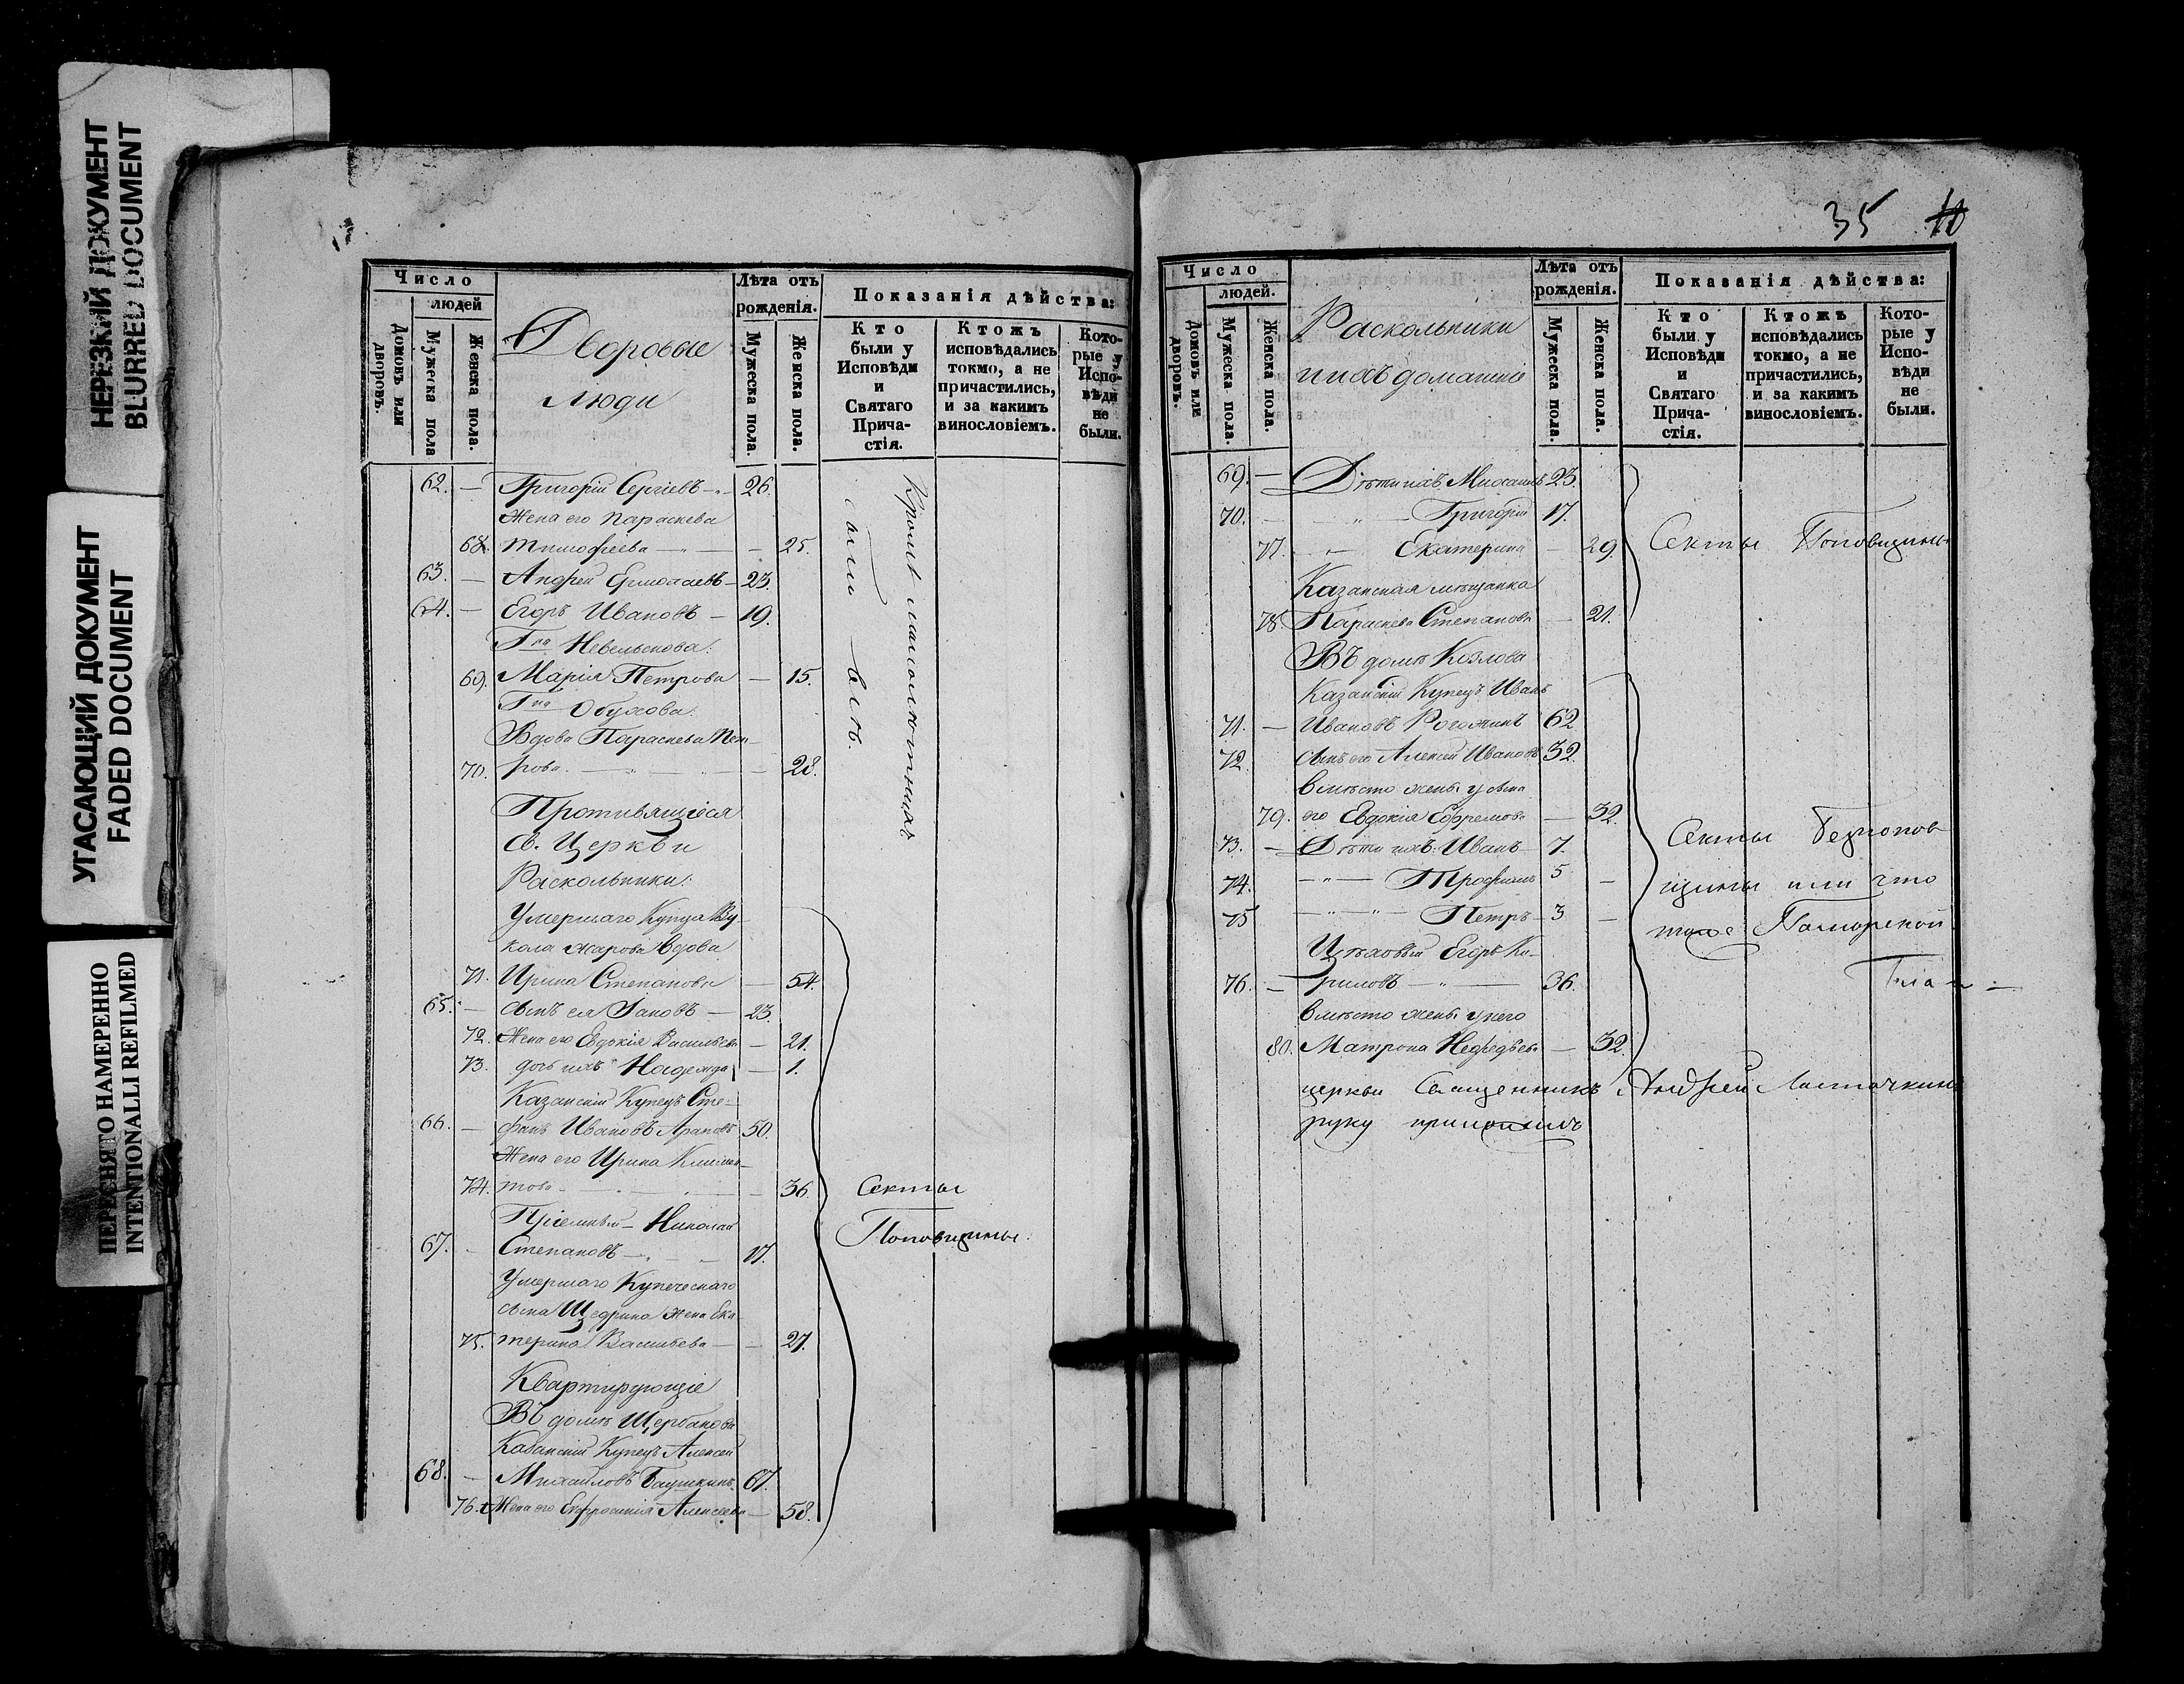 НЕРЕЗКИЙ ДОКУМЕНТ
BLURRED DOCUMENT
УГАСАЮЩИЙ ДОКУМЕНТ
FADED DOCUMENT
ПЕРЕСНЯТО НАМЕРЕННО
INTENTIONALLI REFILMED
Число
людей
Домовъ или дворовъ.
Мужеска пола
Женска пола.
Дворовые
люди
Лѣта отъ рожденія.
Мужеска пола.
Женска пола.
Показанія дѣйства:
Кто были у Исповѣди и Святаго Причастія.
Ктожъ исповѣдались токмо, а не причастились, и за какимъ винословіемъ.
Которые у Исповѣди не были.
62. — Григорій Сергіевъ — 26.
Жена его Параскева
68. Тимофіева — — 25.
63. — Андрей Ермолаевъ — 23.
64. — Егоръ Ивановъ — 19.
Гна Невельскова:
69. Марія Петрова — 15.
Гна Обухова.
Вдова Параскева Пет-
70. рова. — — 28.
Кромѣ малолѣтныхъ
Противящіеся
Св. Церкви
Раскольники:
Умершаго Купца Ву-
кола Жарова Вдова
71. Ирина Степанова — 54.
65. — сынъ ея Іаковъ — 23.
72. Жена его Евдокія Васильева — 21.
73. дочь ихъ Надежда — 1.
Казанскій Купецъ Сте-
66. — фанъ Ивановъ 50.
Жена его Ирина Климен-
74. това — — 36.
Пріемный — Николай
67. — Степановъ — 17.
Умершаго Купеческаго
сына Щедрина жена Ека-
75. терина Васильева — — 27.
Секты
Поповщины.
Квартирующіе
Въ домѣ Щербакова
Казанскій Купецъ Алексей
68. — Михайловъ 67.
76. Жена его Евфросинія Алексеева — 58.
35 10
Число
людей.
Домовъ или дворовъ.
Мужеска пола.
Женска пола.
Раскольники
и ихъ домашніе
Лѣта отъ рожденія.
Мужеска пола.
Женска пола.
Показанія дѣйства:
Кто были у Исповѣди и Святаго Причастія.
Ктожъ исповѣдались токмо, а не причастились, и за какимъ винословіемъ.
Которые у Исповѣди не были.
69. — Дѣти ихъ Михаилъ 23.
70. — — Григорій 17.
77. — Екатерина — 29.
Секты Поповщины
Казанская мѣщанка
78. Параскева Степанова — 21.
Въ домѣ Козлова
Казанскій Купецъ Иванъ
71. — Ивановъ Рогожинъ 62
72. сынъ его Алексей Ивановъ 32.
вмѣсто жены у сына
79. его Евдокія Ефремова — 32.
73. — Дѣти ихъ: Иванъ 7.
74. — — Трофимъ 5 —
75 — — Петръ — 3 —
Цѣховый Егоръ Ки-
76. — риловъ — 36.
вмѣсто жены у него
80. Матрона Нефедьева — 32.
Секты безпопов
щины или что
тоже Поморской
церкви Священникъ Андрей Ласточкинъ
руку приложилъ